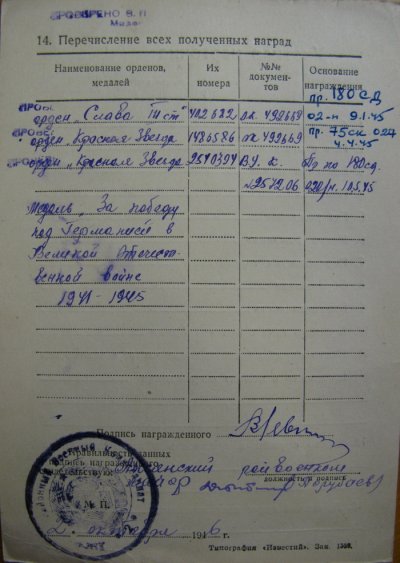 14. Перечисление всех полученных наград
Наименование орденов, медалей
Их номера
№№ документов
Основание награждения
пр. 180 СД
орден „Слава III ст" 402622 ок. 492669 02-н 9.1.45
орден „Красная Звезда 1486586 ок. 492669 пр. 75ск 027
4.4.45
орден „Красная Звезда 2540394 В.У. к. Пр по 180сд.
№ 257206 020/н. 10.5.45
Медаль „За победу
над Германией в
Великой Отечест-
венной войне
1941 - 1945
Подпись награжденного
Правильность данных
и подпись награжденного
свидетельствую:
райвоенком
Майор
должность и подпись
М. П.
2. октября 1946 г.
Типография «Известий». Зак. 1360.